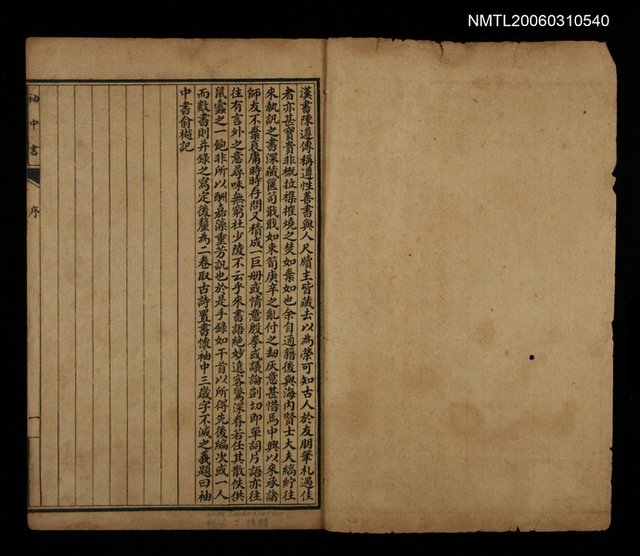 NMTL20060310540
漢書陳遵傳稱遵性善書與人尺牘主皆藏去以為榮可知古人於友朋筆札遇佳
者亦甚寶貴非概拉襍摧燒之焚如棄如也余自通籍後與海內賢士大夫縞紵往
來執訊之書深藏篋笥戢戢如束筍庚辛之亂付之劫灰意甚惜焉中興以來承諸
師友不棄衰庸時時存問又積成一巨册或情意殷拳或議論剴切即單詞片語亦往
往有言外之意尋味無窮杜少陵不云乎來書語絕妙遠客驚深眷若任其散佚供
鼠蠹之一飽非所以酬嘉藻重芳訊也於是手錄如干首以所得先後編次或一人
而數書則并錄之寫定後釐為二卷取古詩置書懷袖中三歲字不滅之義題曰袖
中書俞樾記
袖中書
序
一